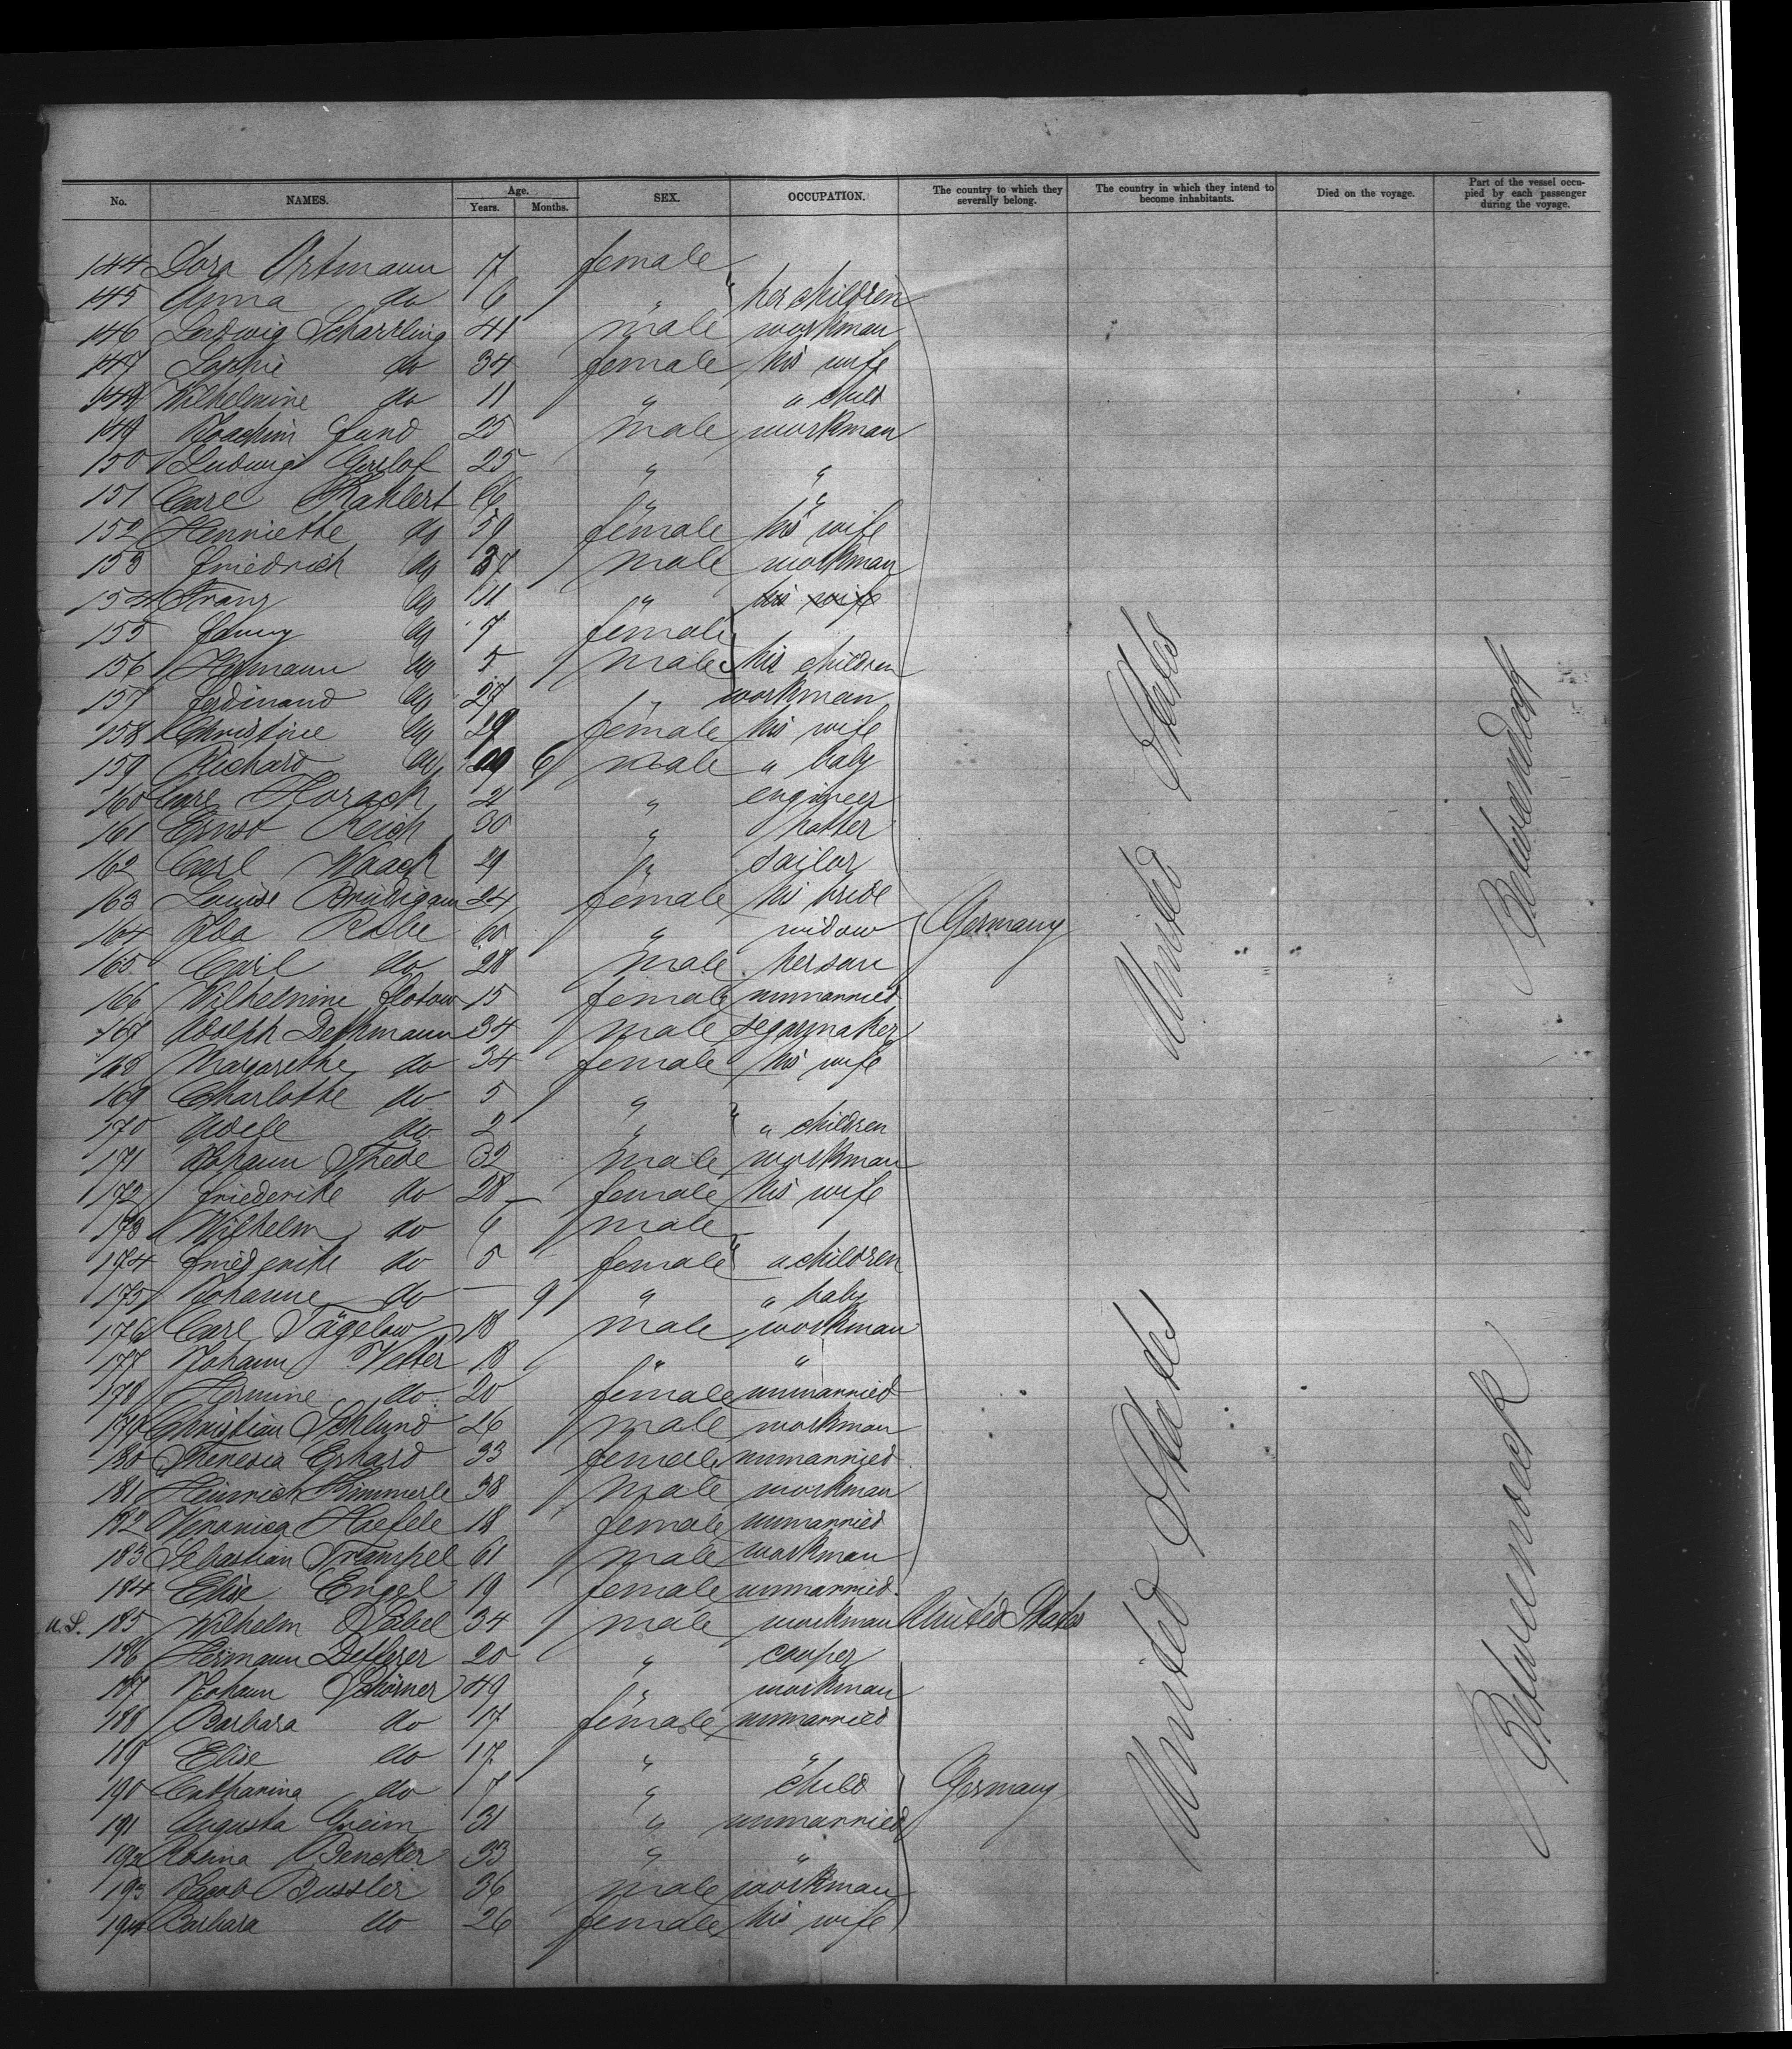 No. NAMES. Age. Years. Months. SEX. OCCUPATION. The country to which they severally belong. The country in which they intend to become inhabitants. Died on the voyage. Part of the vessel occupied by each passenger during the voyage.
144 Dora Ortmann 7 female
145 Anna do 6 " her children
146 Ludwig Scharrling 41 male workman
147 Sophie do 34 female his wife
148 Wilhelmine do 11 " " child
149 Joachim Fund 25 male workman
150 Ludwig Gerlof 25 " "
151 Carl Kahlert 66 " "
152 Henriette do 59 female his wife
153 Friedrich do 37 male workman
154 Franz do 11 " his wife
155 Fanny do 7 female
156 Hermann do 5 male his children
157 Ferdinand do 27 " workman
158 Christine do 29 female his wife
159 Richard do 6 male " baby
160 Carl Horack 21 " engineer
161 Ernst Reich 30 " hatter
162 Carl Waack 29 " sailor
163 Louise Brüdigam 24 female his bride
164 Ida Rabe 60 " widow Germany
165 Carl do 28 male her son
166 Wilhelmine Flotow 15 female unmarried
167 Adolph Dethmann 34 male segarmaker
168 Margarethe do 34 female his wife
169 Charlotte do 5 "
170 Adele do 2 " " children
171 Johann Thede 32 male workman
172 Friederike do 28 female his wife
173 Wilhelm do 6 male
174 Friederike do 5 female " children
175 Johanne do — 9 " " baby
176 Carl Tägelow 18 male workman
177 Johann Vetter 18 " "
178 Hermine do 20 female unmarried
179 Christian Schlund 26 male workman
180 Theresia Erhard 33 female unmarried
181 Heinrich Kimmerle 38 male workman
182 Veronica Haefele 18 female unmarried
183 Sebastian Trampel 61 male workman
184 Elise Engel 19 female unmarried
U.S. 185 Wilhelm Säbel 34 male workman United States
186 Hermann Defferer 20 " cooper
187 Johann Schörner 49 " workman
188 Barbara do 17 female unmarried
189 Elise do 17 " "
190 Catharina do 7 " child Germany
191 Augusta Greim 31 " unmarried
192 Rosina Bencker 33 " "
193 Jacob Bussler 36 male workman
194 Barbara do 26 female his wife
United States
United States
Betweendeck
Betweendeck